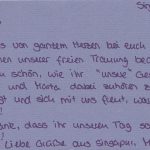 Sin
s von ganzem Herzen bei euch
nen unserer freien Trauung bed
schön, wie ihr "unsere" Ges
und Marta dabei zuhören
gt und sich mit uns freut, wa
!
nke, dass ihr unseren Tag so
! Liebe Grüße aus Singapur. M